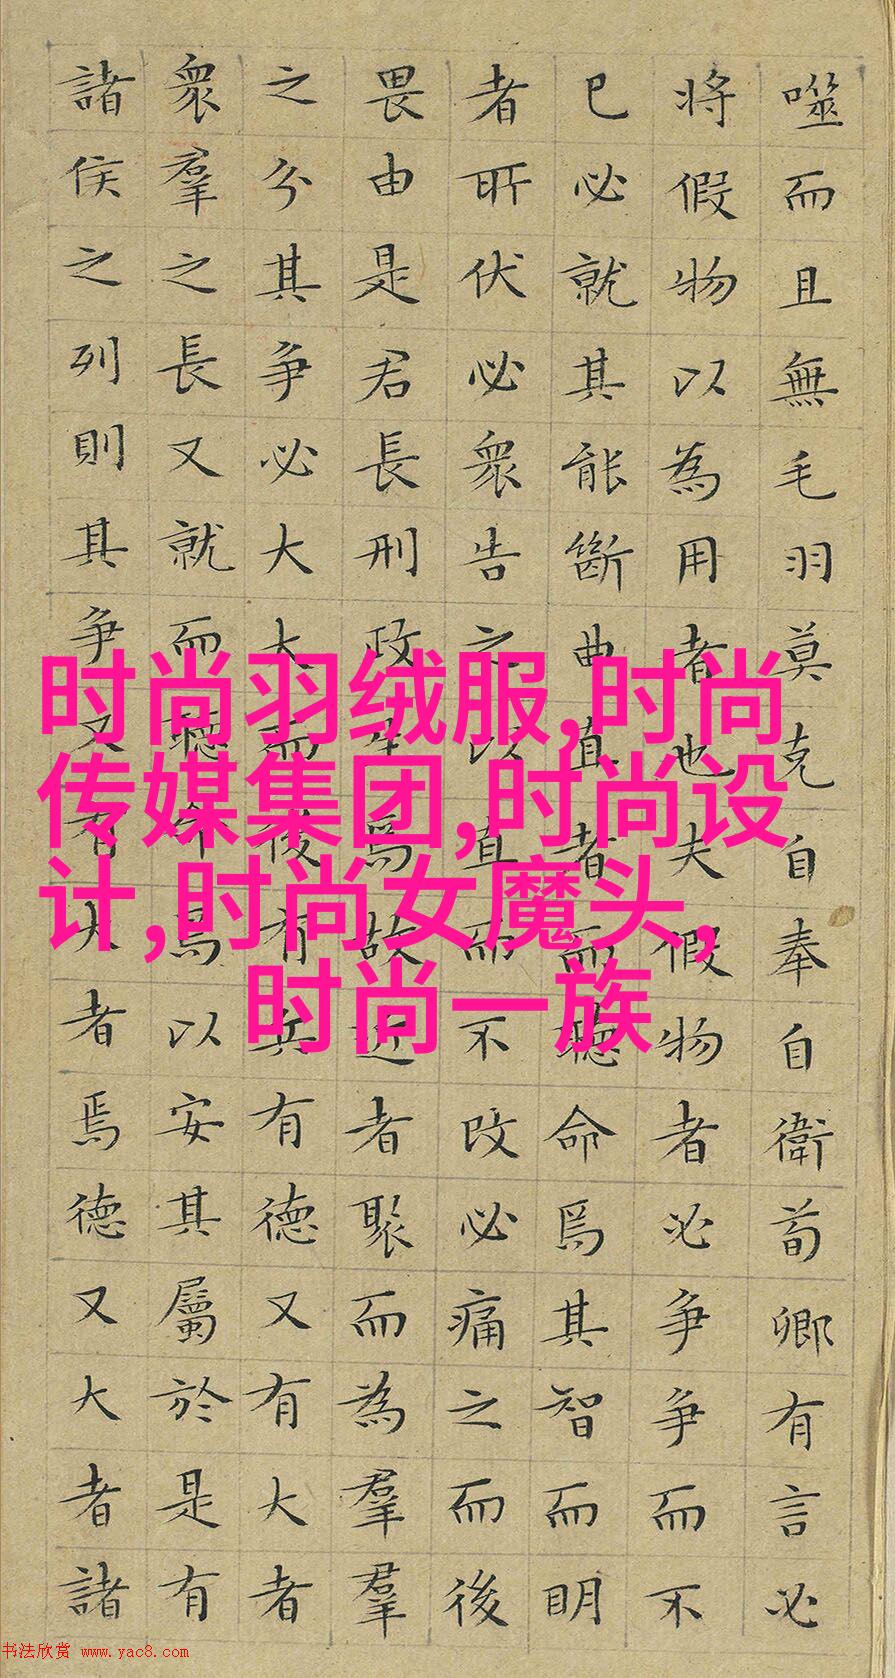 噬而且無毛羽莫克自奉自衛荀卿有言必
將假物以為用者也夫假物者必爭爭而不
已必就其能斷曲直者而聽命焉其智而明
者所伏必衆告之以直而不改必痛之而後
畏由是君長刑政生焉故近者聚而為羣羣
之分其爭必大大而後有兵有德又有大者
衆羣之長又就而聽命焉以安其屬於是有
諸侯之列則其爭又有大者焉德又大者諸
时尚羽绒服,时尚
传媒集团,时尚设
计,时尚女魔头,
时尚一族
书法欣赏 www.yac8.com